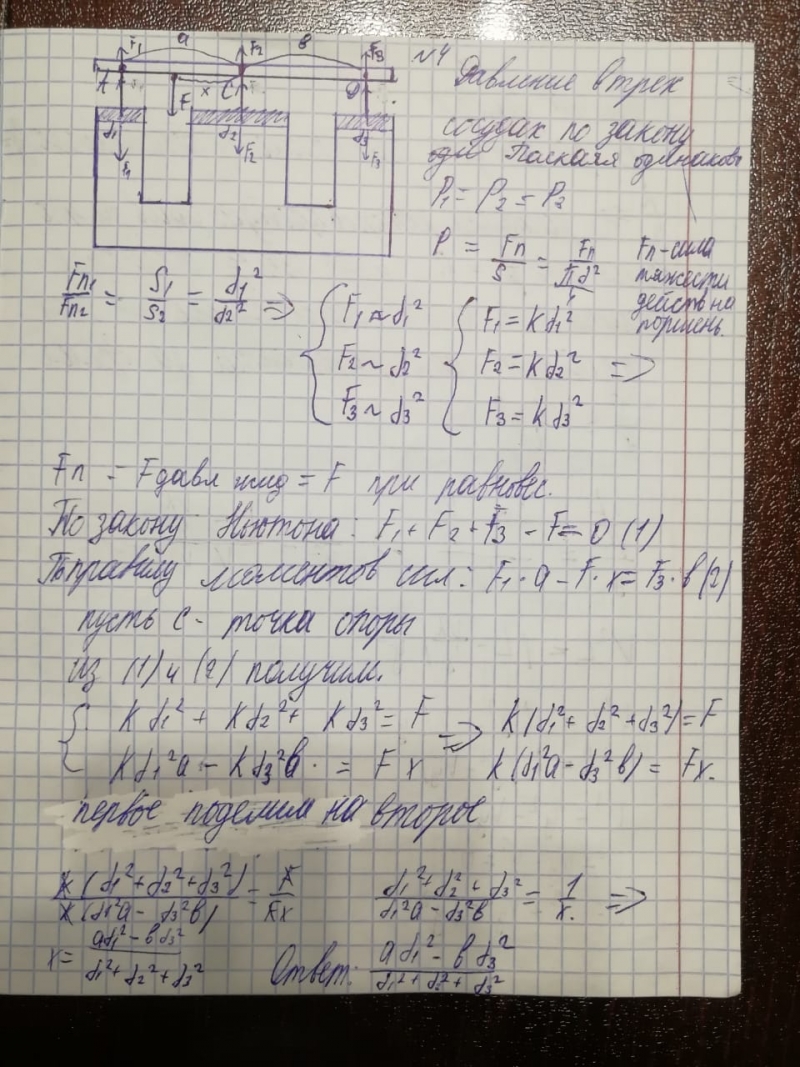 F₁ a F₂ в F₃
A F x C D
d₁ d₂ d₃
F₁ F₂ F₃
№4 Давление в трех
сосудах по закону
Паскаля одинаково
P₁ = P₂ = P₃
P = Fп/S = Fп/(πd²/4)
Fп - сила
тяжести
действ на
поршень.
Fп₁/Fп₂ = S₁/S₂ = d₁²/d₂² => { F₁ ~ d₁² { F₁ = kd₁²
F₂ ~ d₂² F₂ = kd₂² =>
F₃ ~ d₃² F₃ = kd₃²
Fп = Fдавл жид = F при равновес.
По закону Ньютона: F₁ + F₂ + F₃ - F = 0 (1)
По правилу моментов сил: F₁·a - F·x = F₃·в (2)
пусть C - точка опоры
из (1) и (2) получим.
{ kd₁² + kd₂² + kd₃² = F => k(d₁² + d₂² + d₃²) = F
kd₁²a - kd₃²в = Fx k(d₁²a - d₃²в) = Fx.
первое поделим на второе
k(d₁² + d₂² + d₃²)/k(d₁²a - d₃²в) = F/Fx (d₁² + d₂² + d₃²)/(d₁²a - d₃²в) = 1/x. =>
x = (ad₁² - вd₃²)/(d₁² + d₂² + d₃²) Ответ: (ad₁² - вd₃²)/(d₁² + d₂² + d₃²)